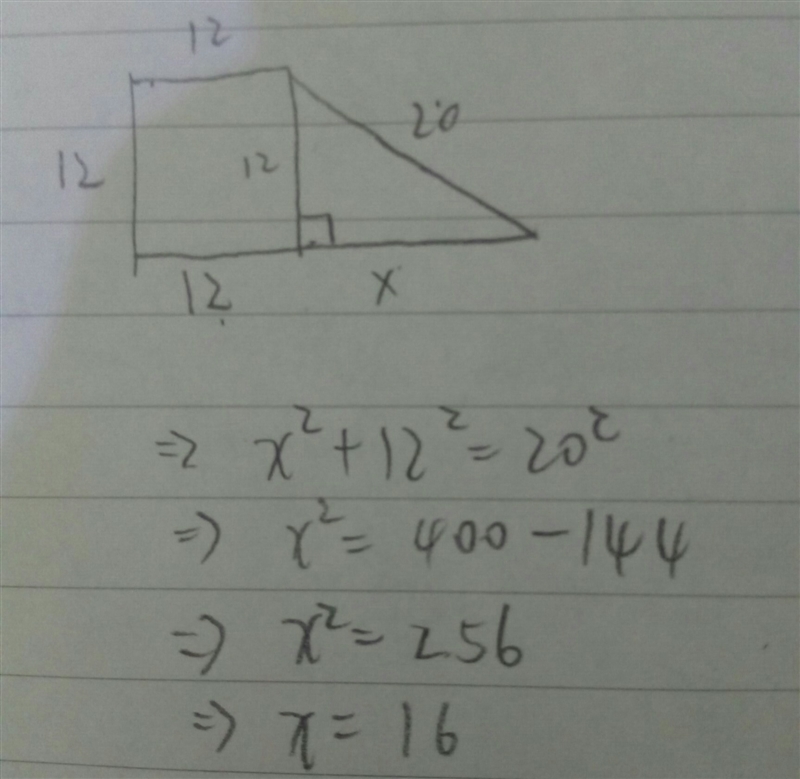 12
20
12
12
12
x
=> x² + 12² = 20²
=> x² = 400 - 144
=> x² = 256
=> x = 16